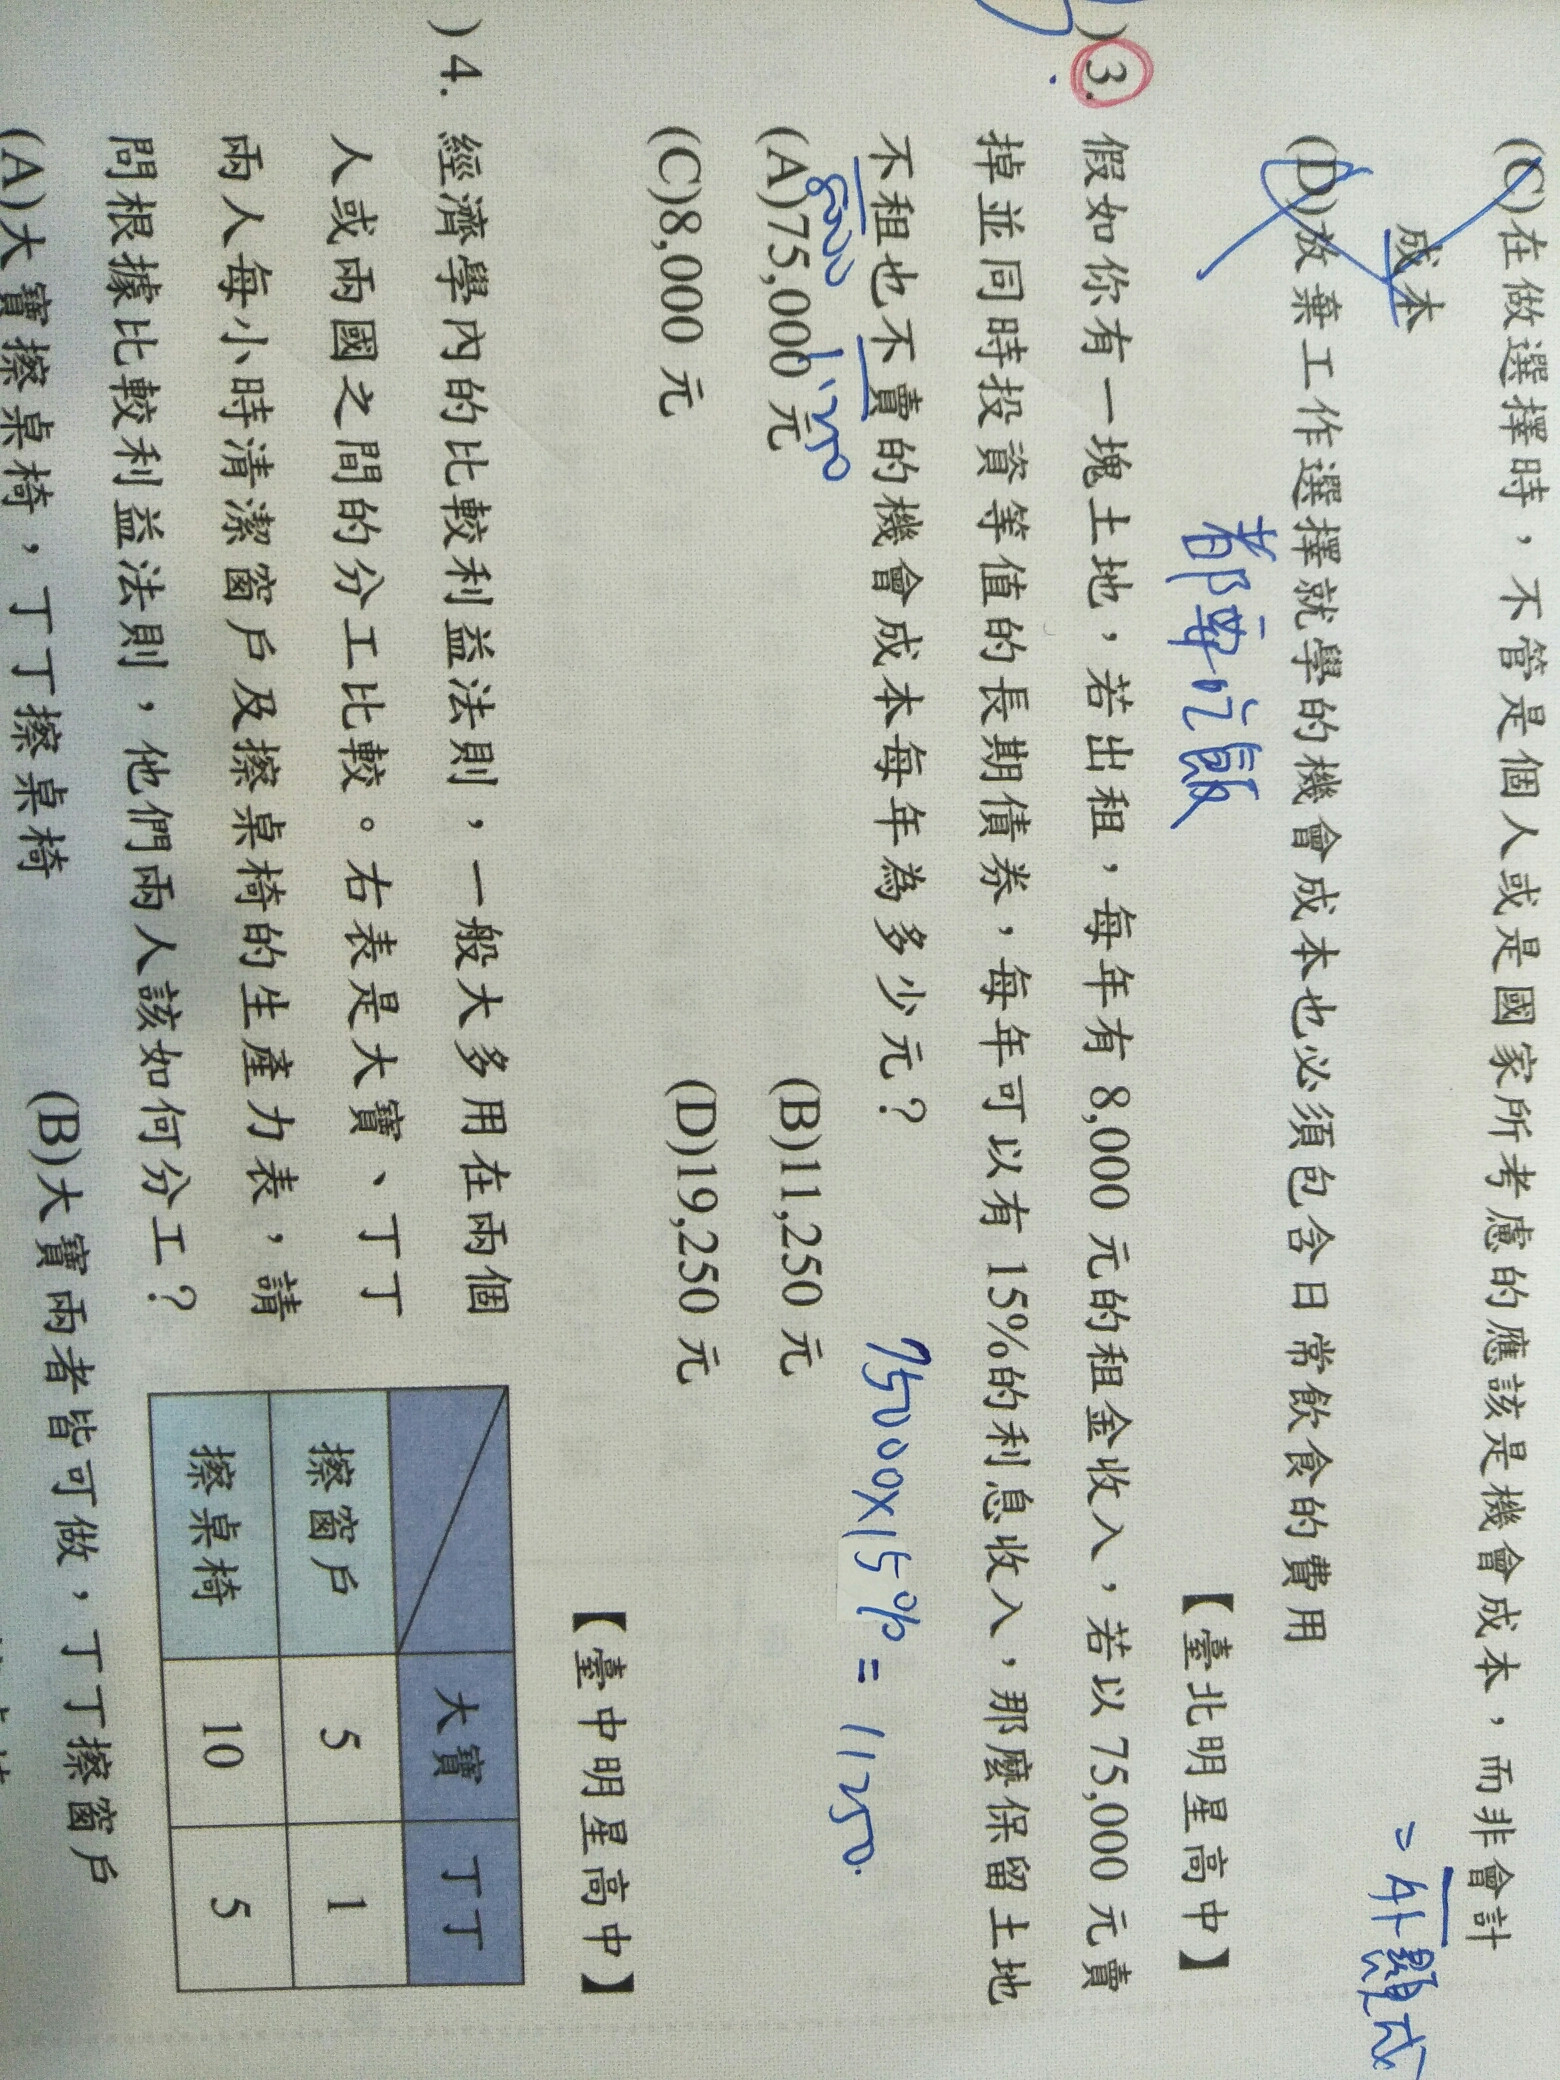 (C)在做選擇時，不管是個人或是國家所考慮的應該是機會成本，而非會計
成本
=外顯成
(D)放棄工作選擇就學的機會成本也必須包含日常飲食的費用
都需吃飯
【臺北明星高中】
)3. 假如你有一塊土地，若出租，每年有 8,000 元的租金收入，若以 75,000 元賣
掉並同時投資等值的長期債券，每年可以有 15%的利息收入，那麼保留土地
不租也不賣的機會成本每年為多少元？
8000 11250
75000×15% = 11250.
(A)75,000 元 (B)11,250 元
(C)8,000 元 (D)19,250 元
【臺中明星高中】
)4. 經濟學內的比較利益法則，一般大多用在兩個
人或兩國之間的分工比較。右表是大寶、丁丁
兩人每小時清潔窗戶及擦桌椅的生產力表，請
問根據比較利益法則，他們兩人該如何分工？
大寶 丁丁
擦窗戶 5 1
擦桌椅 10 5
(A)大寶擦桌椅，丁丁擦桌椅 (B)大寶兩者皆可做，丁丁擦窗戶